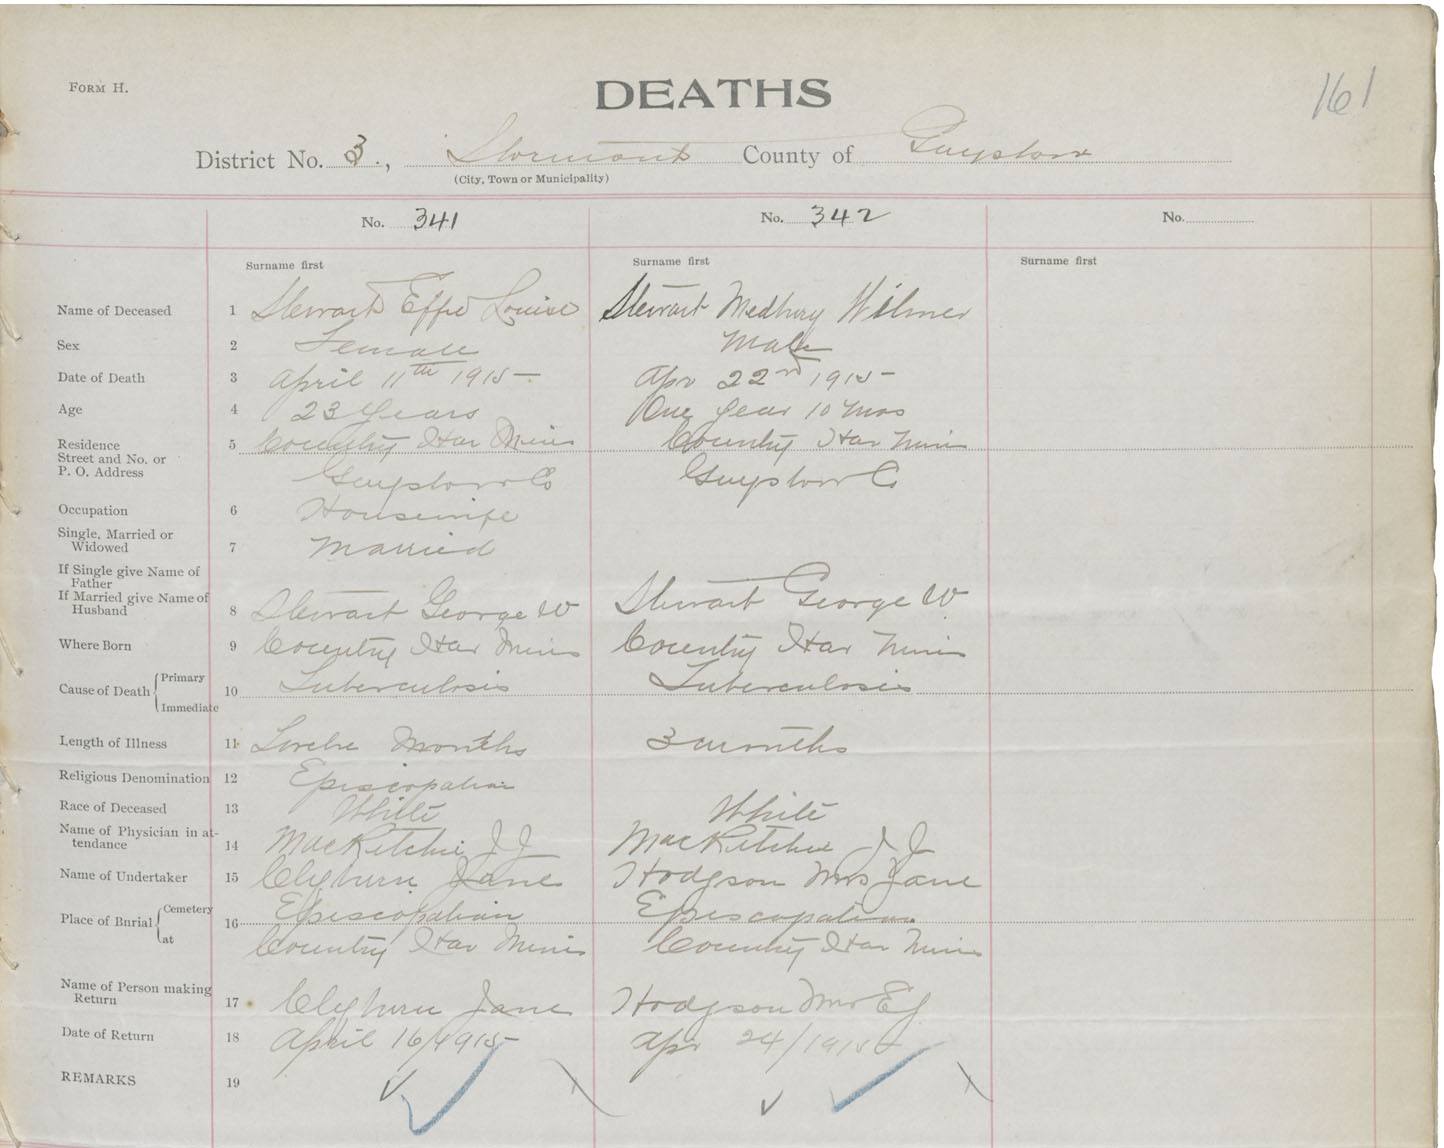 FORM H.
DEATHS
161
District No. 3., Stormont County of Guysboro
(City, Town or Municipality)
No. 341 No. 342 No.
Surname first Surname first Surname first
Name of Deceased 1 Stewart Effie Louise Stewart Medbury Wilmer
Sex 2 Female Male
Date of Death 3 April 11th 1915 Apr 22nd 1915
Age 4 23 Years One year 10 mos
Residence
Street and No. or
P. O. Address
5 Country Har Mines Country Har Mines
Guysboro Co Guysboro Co
Occupation 6 Housewife
Single, Married or
Widowed 7 Married
If Single give Name of
Father
If Married give Name of
Husband 8 Stewart George W Stewart George W
Where Born 9 Country Har Mines Country Har Mines
Cause of Death Primary
Immediate
10 Tuberculosis Tuberculosis
Length of Illness 11 Twelve Months 3 months
Religious Denomination 12 Episcopalian
Race of Deceased 13 White White
Name of Physician in at-
tendance 14 MacRitchie J J MacRitchie J J
Name of Undertaker 15 Clyburn Jane Hodgson Mrs Jane
Place of Burial Cemetery
at
16 Episcopalian Episcopalian
Country Har Mines Country Har Mines
Name of Person making
Return 17 Clyburn Jane Hodgson Mrs EJ
Date of Return 18 April 16/1915 Apr 24/1915
REMARKS 19